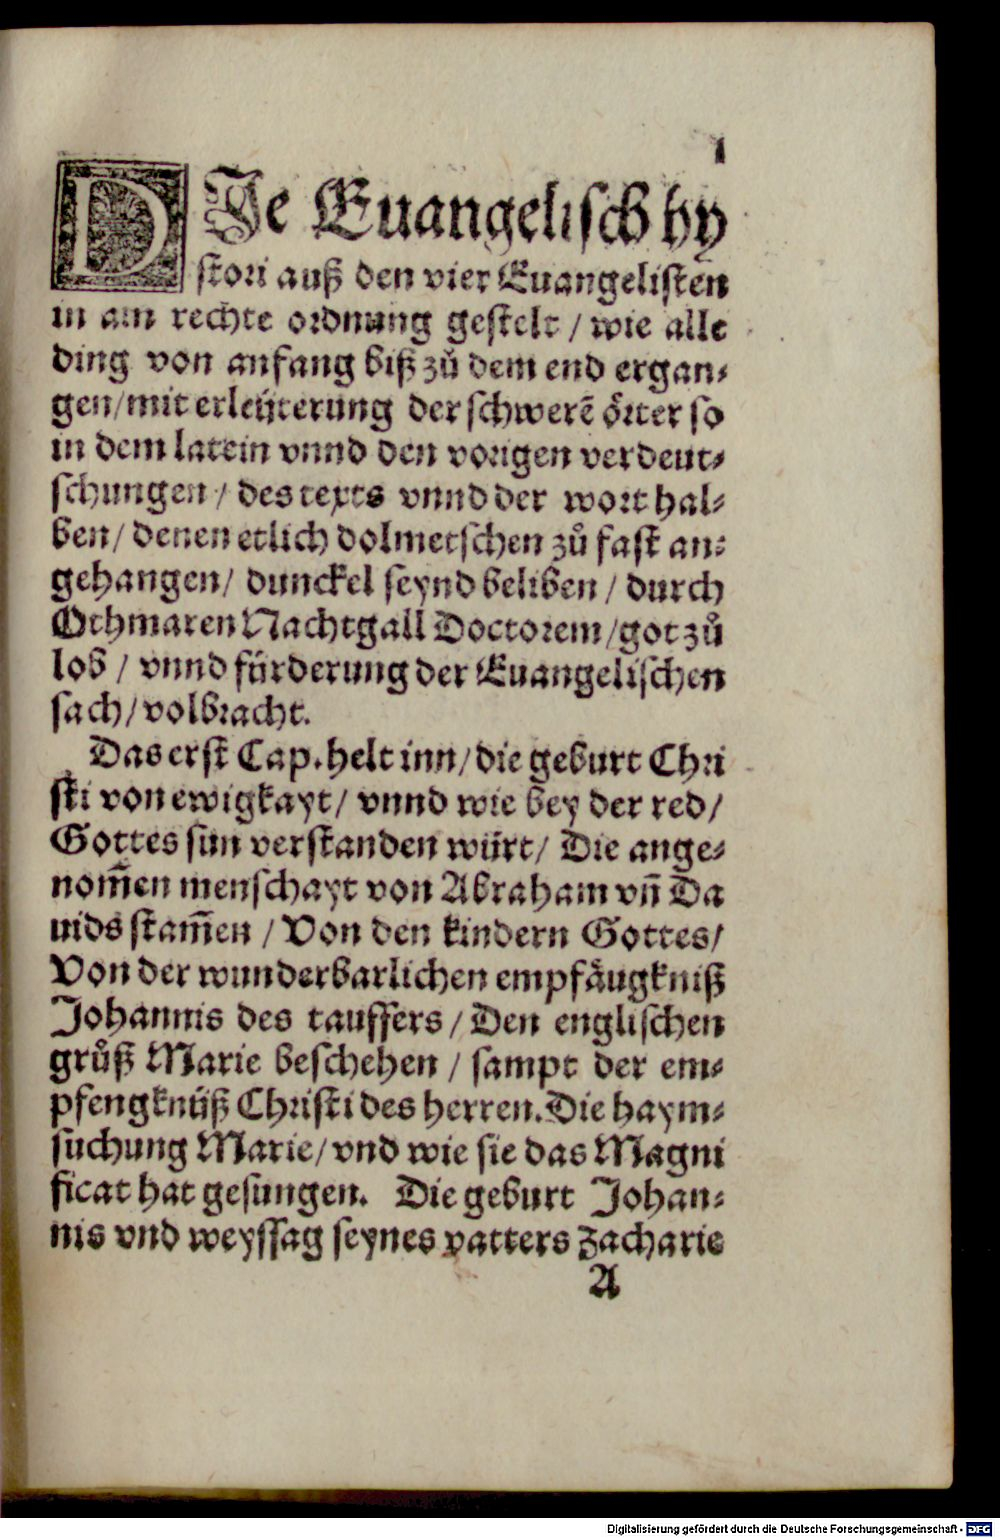 1
DIe Euangelisch hy
stori auß den vier Euangelisten
in ain rechte ordnung gestelt / wie alle
ding von anfang biß zů dem end ergan⸗
gen/mit erleüterung der schwerē örter so
in dem latein vnnd den vorigen verdeut⸗
schungen / des texts vnnd der wort hal⸗
ben/ denen etlich dolmetschen zů fast an⸗
gehangen/ dunckel seynd beliben / durch
Othmaren Nachtgall Doctorem/got zů
lob / vnnd fürderung der Euangelischen
sach/volbracht.
Das erst Cap. helt inn/die geburt Chri
sti von ewigkayt/ vnnd wie bey der red/
Gottes sun verstanden würt/ Die ange⸗
nom̄en menschayt von Abraham vn̄ Da
uids stam̄en / Von den kindern Gottes/
Von der wunderbarlichen empfäugkniß
Johannis des tauffers / Den englischen
grůß Marie beschehen / sampt der em⸗
pfengknüß Christi des herren. Die haym⸗
suchung Marie/ vnd wie sie das Magni
ficat hat gesungen. Die geburt Johan⸗
nis vnd weyssag seynes vatters Zacharie
A
Digitalisierung gefördert durch die Deutsche Forschungsgemeinschaft - DFG